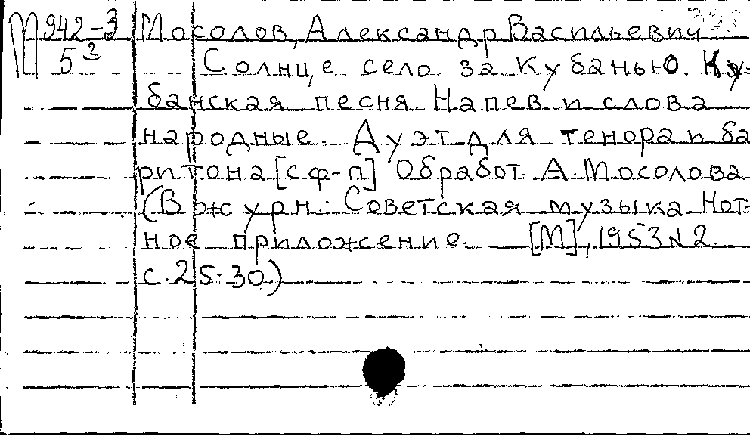 М 942-3 Мосолов, Александр Васильевич
5³ Солнце село за Кубанью. Ку-
банская песня Напев и слова
народные. Дуэт для тенора и ба
ритона [с ф-п] Обработ. А. Мосолова
(В журн. Советская музыка Нот-
ное приложение. [М], 1953 N 2
с. 25-30.)